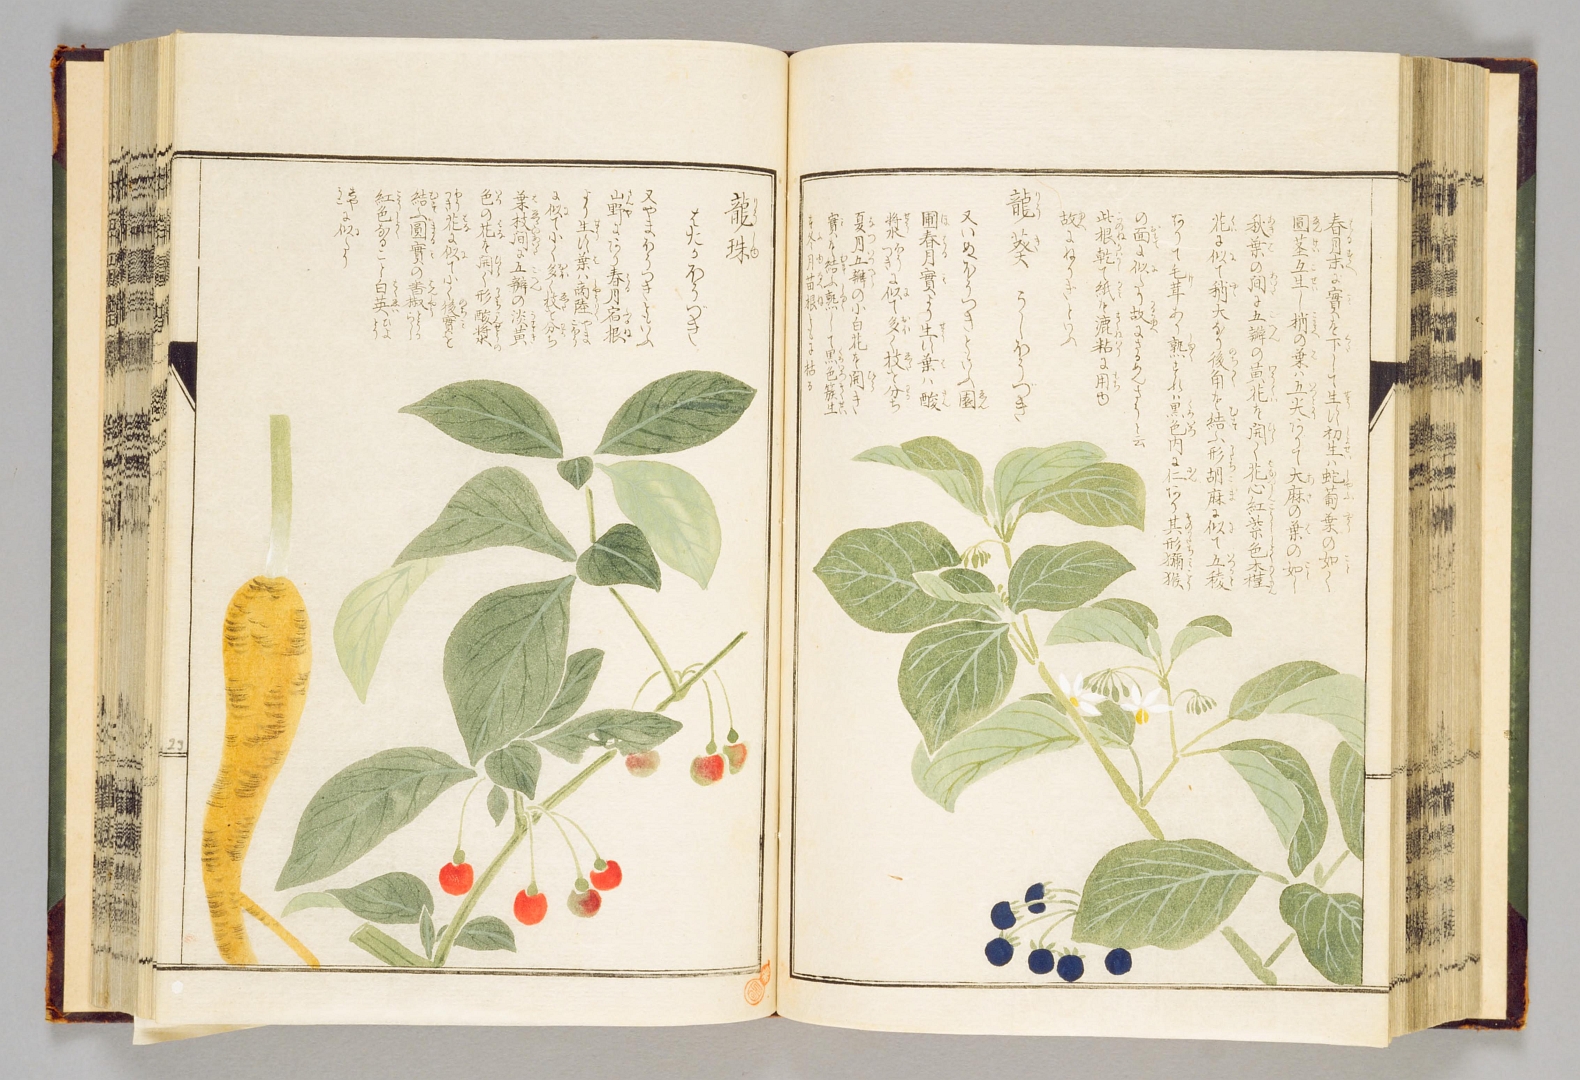 春月末に實を下して生ず初生ハ蛇葡葉の如く
圓茎互生し梢の葉ハ五尖ありて大麻の葉の如し
秋葉の間に五瓣の黄花を開く花心紅紫色木槿
花に似て稍大なり後角を結ふ形胡麻に似て五稜
ありて毛茸あり熟されハ黒色内に仁あり其形獼猴
の面に似たり故にさるめんさうと云
此根乾て紙を漉粘に用ゆ
故にねりきといふ
龍葵 うしほうづき
又いぬほうつきといふ園
圃春月實より生ず葉ハ酸
漿に似て多く枝を分ち
夏月五瓣の小白花を開き
實を結ふ熟して黒色簇生
す冬月苗根ともに枯る
龍珠
はだかほうづき
又やまほうつきといふ
山野にあり春月宿根
より生ず葉ハ商陸
に似て小く多く枝を分ち
葉枝間に五瓣の淡黄
色の花を開く形酸漿
の花に似て小く後實を
結ふ圓實の番椒
紅色なること白英
に似たり
23